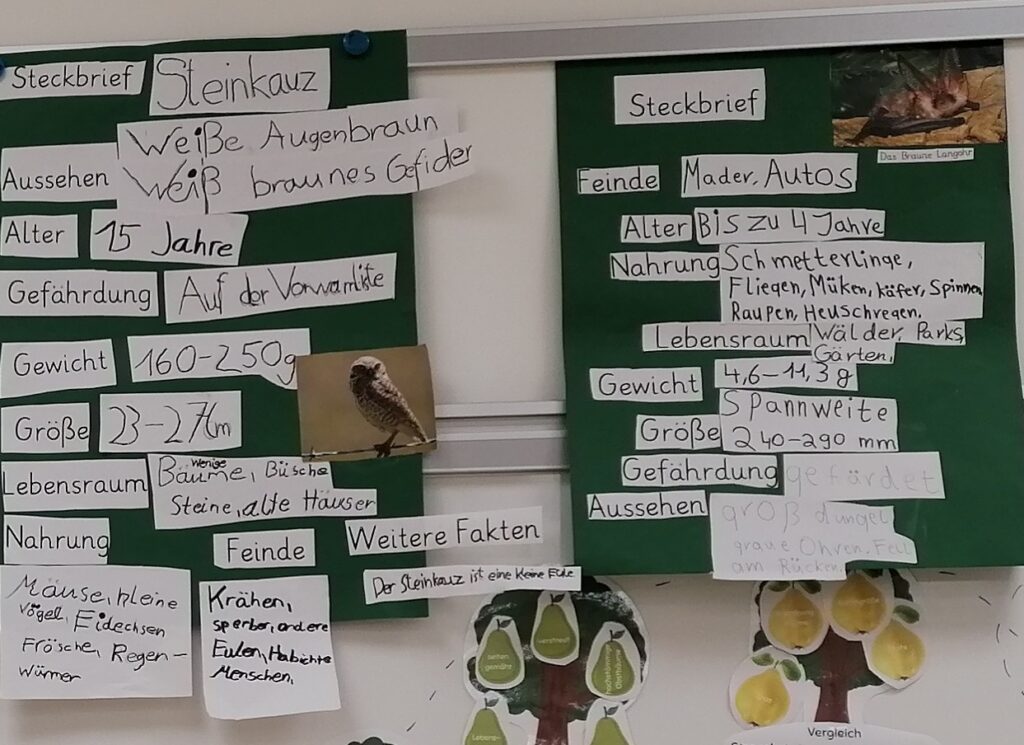 Steckbrief Steinkauz
Weiße Augenbraun
Aussehen Weiß braunes Gefider
Alter 15 Jahre
Gefährdung Auf der
Gewicht 160-250g
Größe 23-27cm
Lebensraum Bäume, wenige Büsche
Steine, alte Häuser
Nahrung
Mäuse, kleine
Vögel, Eidechsen
Frösche, Regen-
würmer
Feinde
Krähen,
sperber, andere
Eulen, Habichte
Menschen,
Weitere Fakten
Der Steinkauz ist eine kleine Eule
Steckbrief
Das Braune Langohr
Feinde Mader, Autos
Alter Bis zu 4 Jahre
Nahrung Schmetterlinge,
Fliegen, Müken, käfer, Spinnen
Raupen, Heuschregen.
Lebensraum Wälder, Parks,
Gärten,
Gewicht 4,6-11,3g
Größe Spannweite
240-290 mm
Gefährdung gefärdet
Aussehen groß dungel
graue Ohren. Fell
am Rücken.
selten
gemäht
verstreut
hochstämmige
Obstbäume
Lebens-
Vergleich